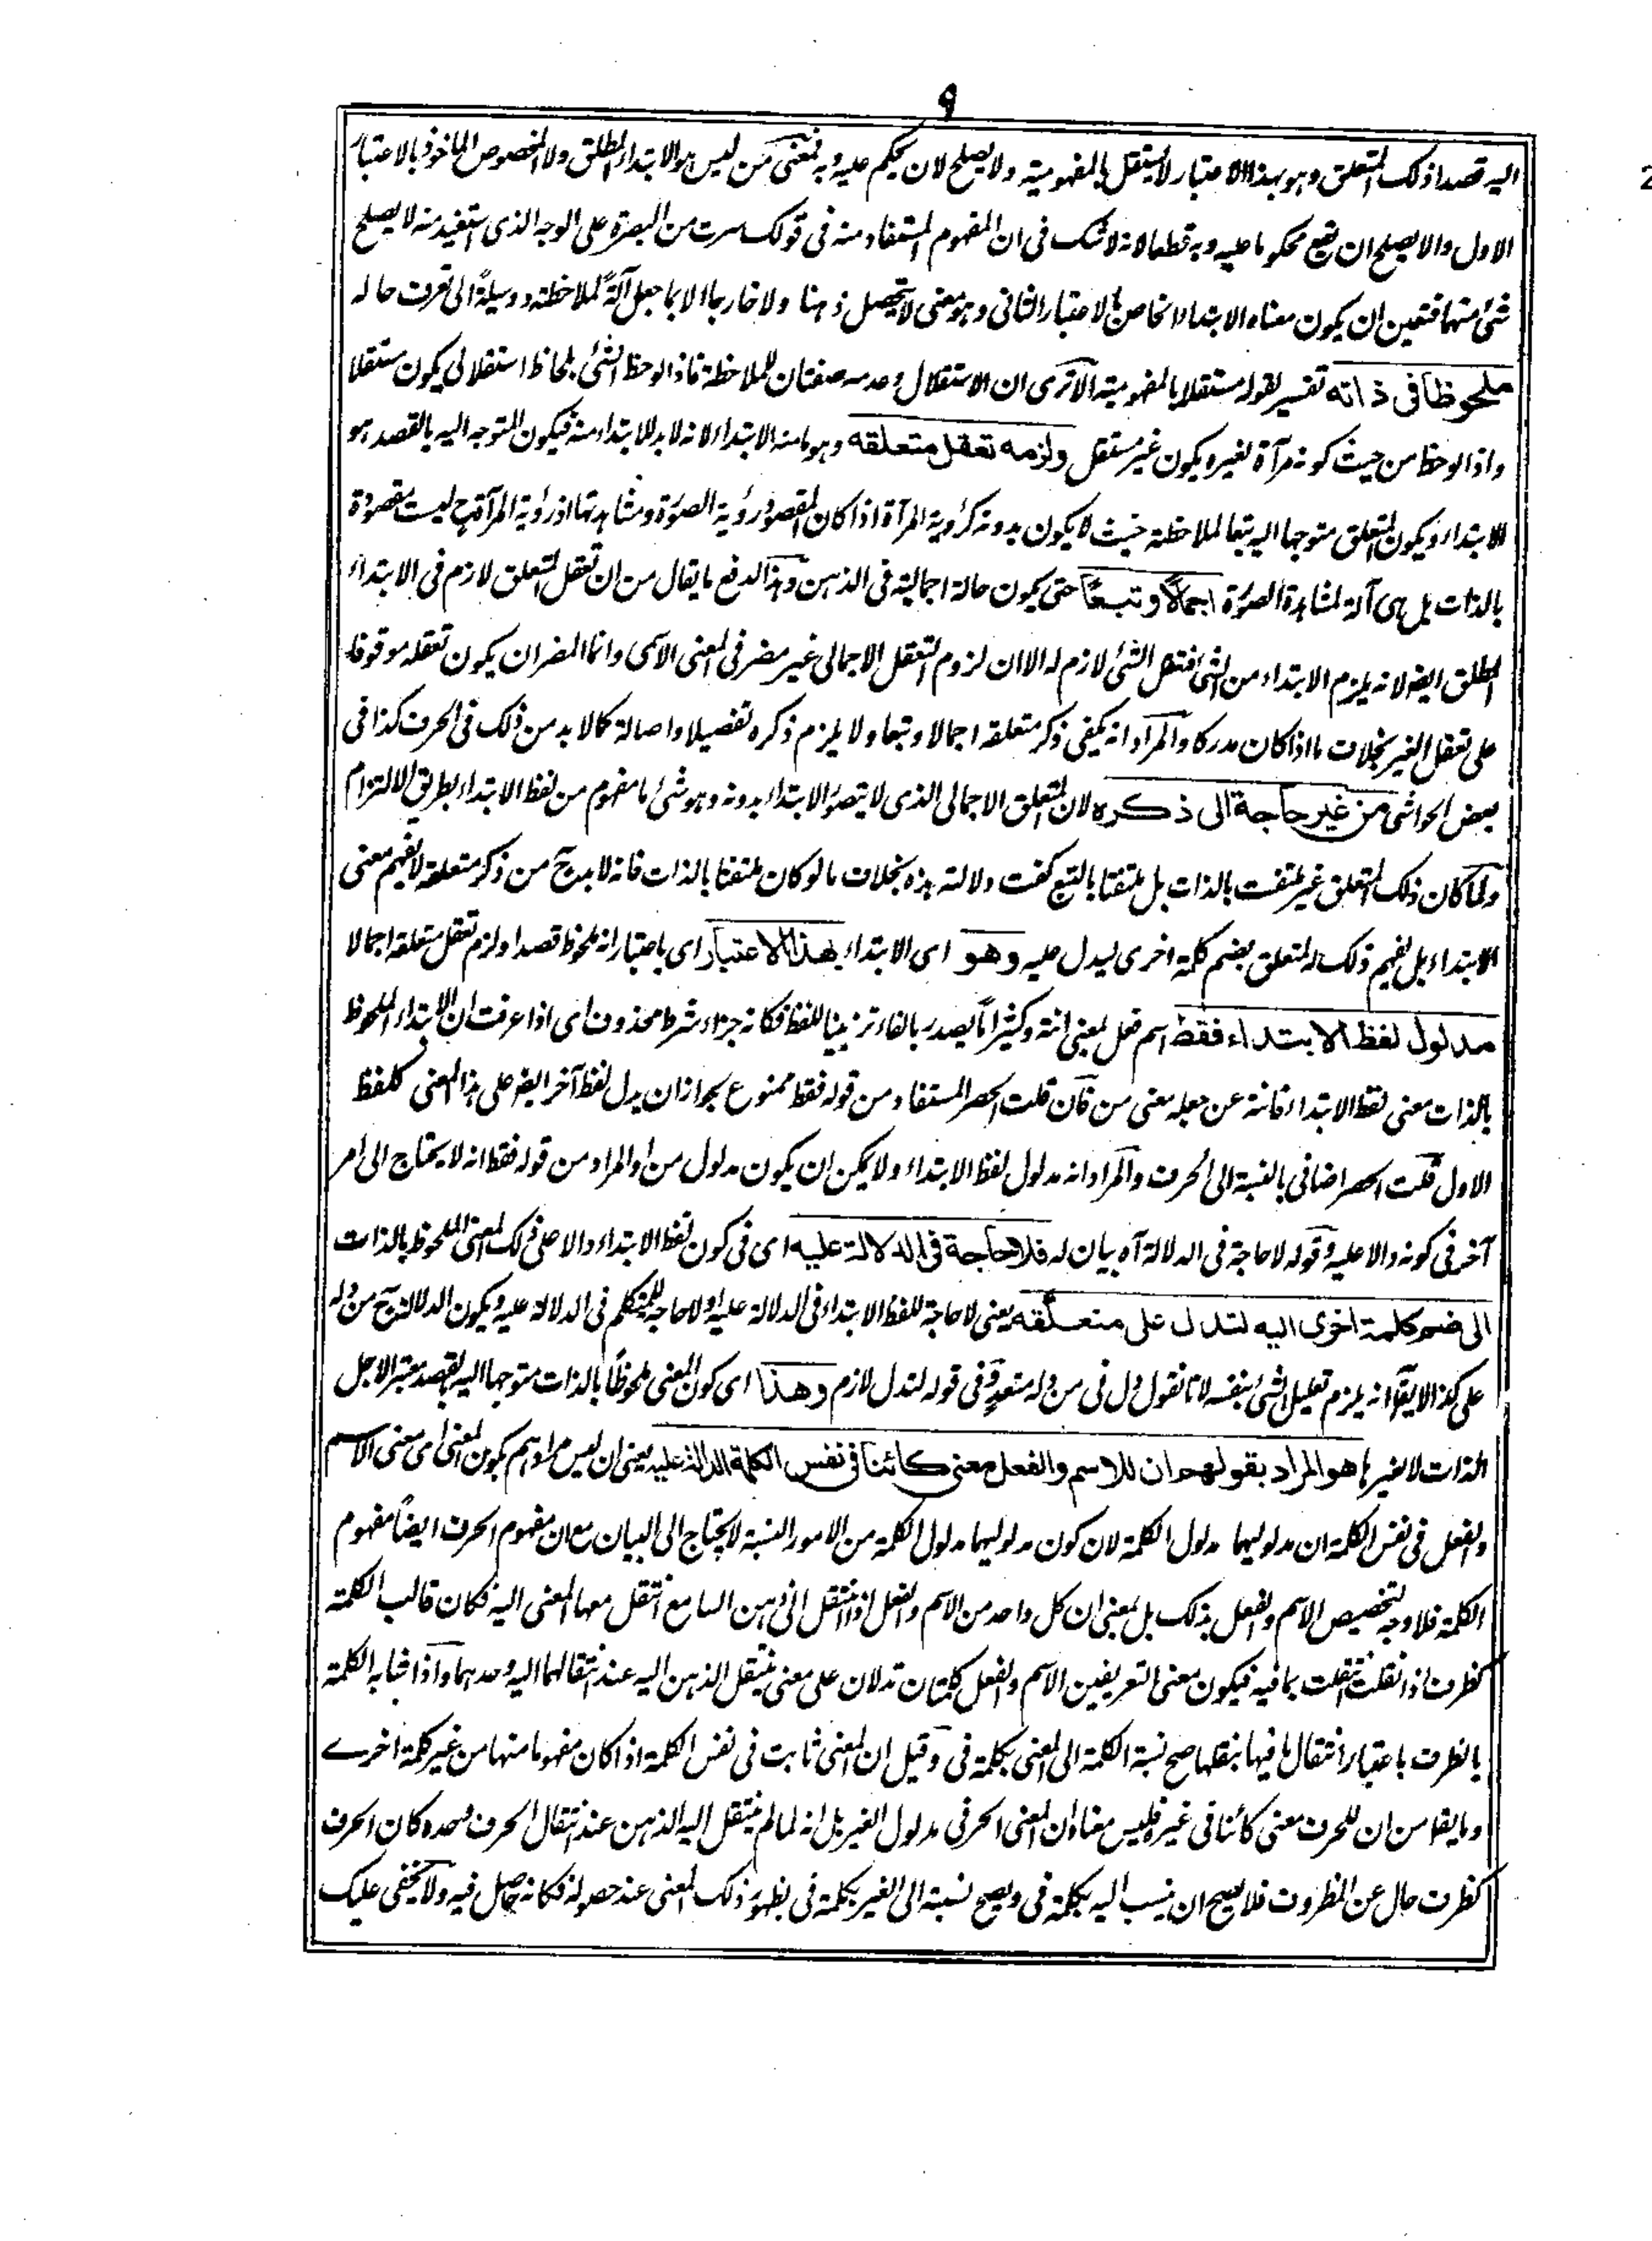 ٩
اليه قصدا ذلك المتعلق وهو بهذا الاعتبار لا يستقل بالمفهومية ولا يصلح لان يحكم عليه وبه فمعنى من ليس هو الابتداء المطلق ولا المخصوص الماخوذ بالاعتبار
الاول والا يصلح ان يقع محكوما عليه وبه قطعا لانه لا شك فى ان المفهوم المستفاد منه فى قولك سرت من البصرة على الوجه الذى استفيد منه لا يصلح
شئ منهما فتعين ان يكون معناه الابتداء الخاص بالاعتبار الثانى وهو معنى لا يتحصل ذهنا ولا خارجا الا بما جعل آلة لملاحظته ووسيلة الى تعرف حاله
ملحوظا فى ذاته تفسير لقوله مستقلا بالمفهومية الا ترى ان الاستقلال وعدمه صفتان للملاحظة فاذا لوحظ الشئ بلحاظ استقلالى يكون مستقلا
واذا لوحظ من حيث كونه مرآة لغيره يكون غير مستقل ولزمه تعقل متعلقه وهو ما منه الابتداء لانه لا بد للابتداء منه فيكون المتوجه اليه بالقصد هو
الابتداء ويكون المتعلق متوجها اليه تبعا لملاحظته حيث لا يكون بدونه كرؤية المرآة اذا كان المقصود رؤية الصورة ومشاهدتها اذ رؤية المرآة ح ليست مقصودة
بالذات بل هى آلة لمشاهدة الصورة اجمالا وتبعا حتى يكون حالة اجمالية فى الذهن وهذا لدفع ما يقال من ان تعقل المتعلق لازم فى الابتداء
المطلق ايضا لانه يلزم الابتداء من الشئ فتعقل الشئ لازم له الا ان لزوم التعقل الاجمالى غير مضر فى المعنى الاسمى وانما المضر ان يكون تعقله موقوفا
على تعقل الغير بخلاف ما اذا كان مدركا والمراد انه يكفى ذكر متعلقه اجمالا وتبعا ولا يلزم ذكره تفصيلا واصالة كما لا بد من ذلك فى الحرف كذا فى
بعض الحواشى من غير حاجة الى ذكره لان المتعلق الاجمالى الذى لا يتصور الابتداء بدونه وهو شئ ما مفهوم من لفظ الابتداء بطريق الالتزام
ولما كان ذلك المتعلق غير ملتفت بالذات بل ملتفتا بالتبع كفت دلالته هذه بخلاف ما لو كان ملتفتا بالذات فانه لا بد ح من ذكر متعلقه لا يفهم معنى
الابتداء بل ليفهم ذلك المتعلق بضم كلمة اخرى ليدل عليه وهو اى الابتداء بهذا الاعتبار اى باعتبار انه ملحوظ قصدا ولزم تعقل متعلقه اجمالا
مدلول لفظ الابتداء فقط اسم فعل بمعنى انته وكثيرا ما يصدر بالفاء تزيينا للفظ فكانه جزاء شرط محذوف اى اذا عرفت ان الابتداء الملحوظ
بالذات معنى لفظ الابتداء فانته عن جعله معنى من فان قلت الحصر المستفاد من قوله فقط ممنوع بجواز ان يدل لفظ آخر ايضا على هذا المعنى كلفظ
الاول قلت الحصر اضافى بالنسبة الى الحرف والمراد انه مدلول لفظ الابتداء ولا يمكن ان يكون مدلول من او المراد من قوله فقط انه لا يحتاج الى امر
آخر فى كونه دالا عليه وقوله لا حاجة فى الدلالة آه بيان له فلا حاجة فى الدلالة عليه اى فى كون لفظ الابتداء دالا على ذلك المعنى الملحوظ بالذات
الى ضم كلمة اخرى اليه لتدل على متعلقه يعنى لا حاجة للفظ الابتداء فى الدلالة عليه او لا حاجة للمتكلم فى الدلالة عليه ويكون الدلالة ح من دله
على كذا لا يقال انه يلزم تعليل الشئ بنفسه لانا نقول دل فى من دله متعد وفى قوله لتدل لازم وهذا اى كون المعنى ملحوظا بالذات متوجها اليه بالقصد معتبرا لاجل
الذات لا لغيرها هو المراد بقولهم ان للاسم والفعل معنى كائنا فى نفس الكلمة الدالة عليه يعنى ان ليس مرادهم بكون المعنى اى معنى الاسم
والفعل فى نفس الكلمة ان مدلوليهما مدلول الكلمة لان كون مدلوليهما مدلول الكلمة من الامور البينة لا يحتاج الى البيان مع ان مفهوم الحرف ايضا مفهوم
الكلمة فلا وجه لتخصيص الاسم والفعل بذلك بل بمعنى ان كل واحد من الاسم والفعل اذا انتقل الى ذهن السامع انتقل معها المعنى اليه فكان قالب الكلمة
كظرف اذا نقلت انتقلت بما فيه فيكون معنى التعريفين الاسم والفعل كلمتان تدلان على معنى ينتقل الذهن اليه عند انتقالهما اليه وحدهما واذا شابه الكلمة
بالظرف باعتبار انتقال ما فيها بنقلها صح نسبة الكلمة الى المعنى بكلمة فى وقيل ان المعنى ثابت فى نفس الكلمة اذا كان مفهوما منها من غير كلمة اخرى
وما يقال من ان للحرف معنى كائنا فى غيره فليس معناه ان المعنى الحرفى مدلول الغير بل انه لما لم ينتقل اليه الذهن عند انتقال الحرف وحده كان الحرف
كظرف خال عن المظروف فلا يصح ان ينسب اليه بكلمة فى ويصح نسبته الى الغير بكلمة فى بظهور ذلك المعنى عند حصوله فكانه حاصل فيه ولا يخفى عليك